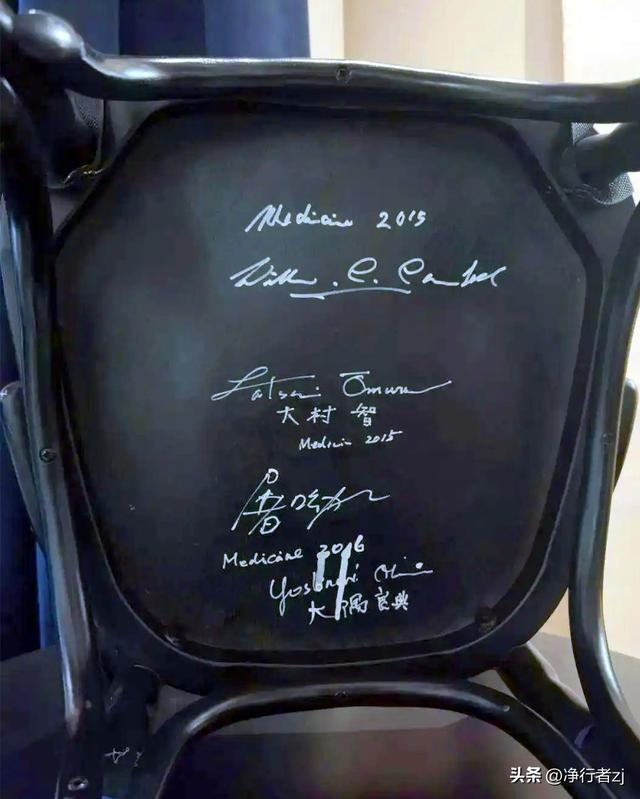 Medicine 2015
William C. Campbell
Satoshi Ōmura
大村智
Medicin 2015
屠呦呦
Medicine 2016
Yoshinori Ohsumi
大隅良典
头条 @净行者zj